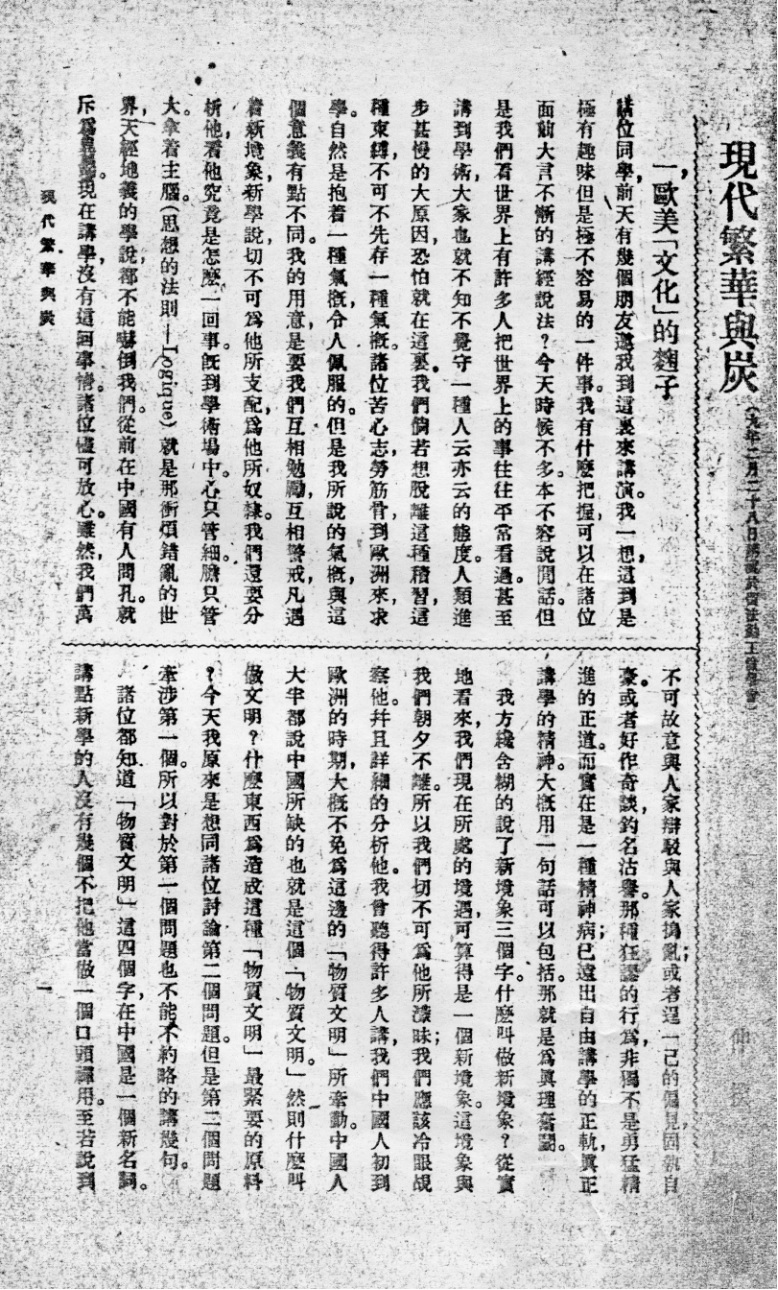 現代繁華與炭
(九年二月二十八日講演於留法勤工儉學會)
仲揆
一,歐美「文化」的麴子
諸位同學,前天有幾個朋友邀我到這裏來講演。我一想,這到是
極有趣味但是極不容易的一件事。我有什麼把握,可以在諸位
面前大言不慚的講經說法?今天時候不多,本不容說閒話。但
是我們看世界上有許多人把世界上的事往往平常看過。甚至
講到學術,大家也就不知不覺守一種人云亦云的態度。人類進
步甚慢的大原因,恐怕就在這裏。我們倘若想脫離這種積習,這
種束縛,不可不先存一種氣概。諸位苦心志,勞筋骨,到歐洲來求
學。自然是抱着一種氣概,令人佩服的。但是我所說的氣概,與這
個意義有點不同。我的用意,是要我們互相勉勵,互相警戒,凡遇
着新境象,新學說,切不可為他所支配,為他所奴隸。我們還要分
析他,看他究竟是怎麼一回事。旣到學術場中,心只管細。膽只管
大。拿着主腦(思想的法則—Logique)就是那衝煩錯亂的世
界,天經地義的學說,都不能嚇倒我們。從前在中國有人問孔,就
斥為異端。現在講學,沒有這囘事情。諸位儘可放心。雖然,我們萬
不可故意與人家辯駁,與人家搗亂;或者逞一己的偏見,固執自
豪。或者好作奇談,釣名沽譽。那種狂謬的行為,非獨不是勇猛精
進的正道。而實在是一種精神病;已遠出自由講學的正軌。眞正
講學的精神。大概用一句話可以包括。那就是為眞理奮鬭。
我方纔含糊的說了新境象三個字。什麼叫做新境象?從實
地看來,我們現在所處的境遇,可算得是一個新境象。這境象與
我們朝夕不離。所以我們切不可為他所濛昧;我們應該冷眼觇
察他。幷且詳細的分析他。我曾聽得許多人講,我們中國人初到
歐洲的時期,大概不免為這邊的「物質文明」所牽動。中國人
大半都說中國所缺的也就是這個「物質文明。」然則什麼叫
做文明?什麼東西為造成這種「物質文明」最緊要的原料
?今天我原來是想同諸位討論第二個問題。但是第二個問題
牽涉第一個。所以對於第一個問題也不能不約略的講幾句。
諸位都知道「物質文明」這四個字,在中國是一個新名詞。
講點新學的人沒有幾個不把他當做一個口頭禪用。至若說到
現代繁華與炭
一